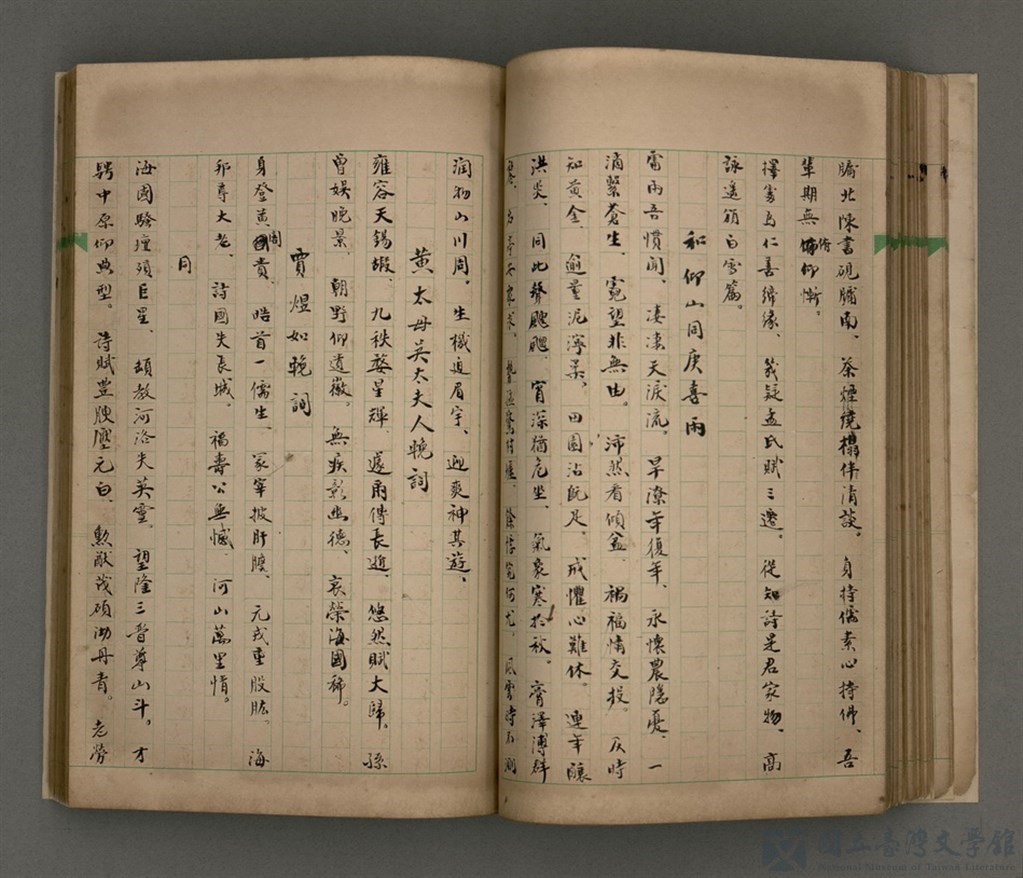 牖北陳書硯牖南、茶煙繞榻伴清談。身持儒素心持佛、吾
輩期無俯仰慚。
擇里為仁善締緣、幾疑孟氏賦三遷。從知詩是君家物、高
詠遙頒白雪篇。
和仰山同庚喜雨
雷雨吾慣聞、淒淒天淚流。旱潦年復年、永懷農隱憂、一
滴繫蒼生、霓望非無由。沛然看傾盆、禍福情交投。仄時
知黃金、逾量泥濘柔。田園沾既足、戒懼心難休。連年釀
洪災、同此聲颼颼、宵深猶危坐、氣裏寒於秋。膏澤溥群
風雲時不測
潤物山川周。生機迫眉宇、迎爽神其遊、
黃太母吳太夫人輓詞
雍容天錫嘏、九秩婺星輝、遽爾傳長逝、悠然賦大歸、孫
曾娛晚景、朝野仰遺徽。無疾彰幽德、哀榮海國稀。
賈煜如輓詞
身登黃閣貴、皓首一儒生、冢宰披肝膽、元戎重股肱、海
邦尊大老、詩國失長城。福壽公無憾、河山萬里情。
同
海國騷壇殞巨星、頡教河洛失英靈、望隆三晉尊山斗。才
騁中原仰典型。詩賦豐腴壓元白、勳猷茂碩沏丹青。老勞
國立臺灣文學館
National Museum of Taiwan Literature